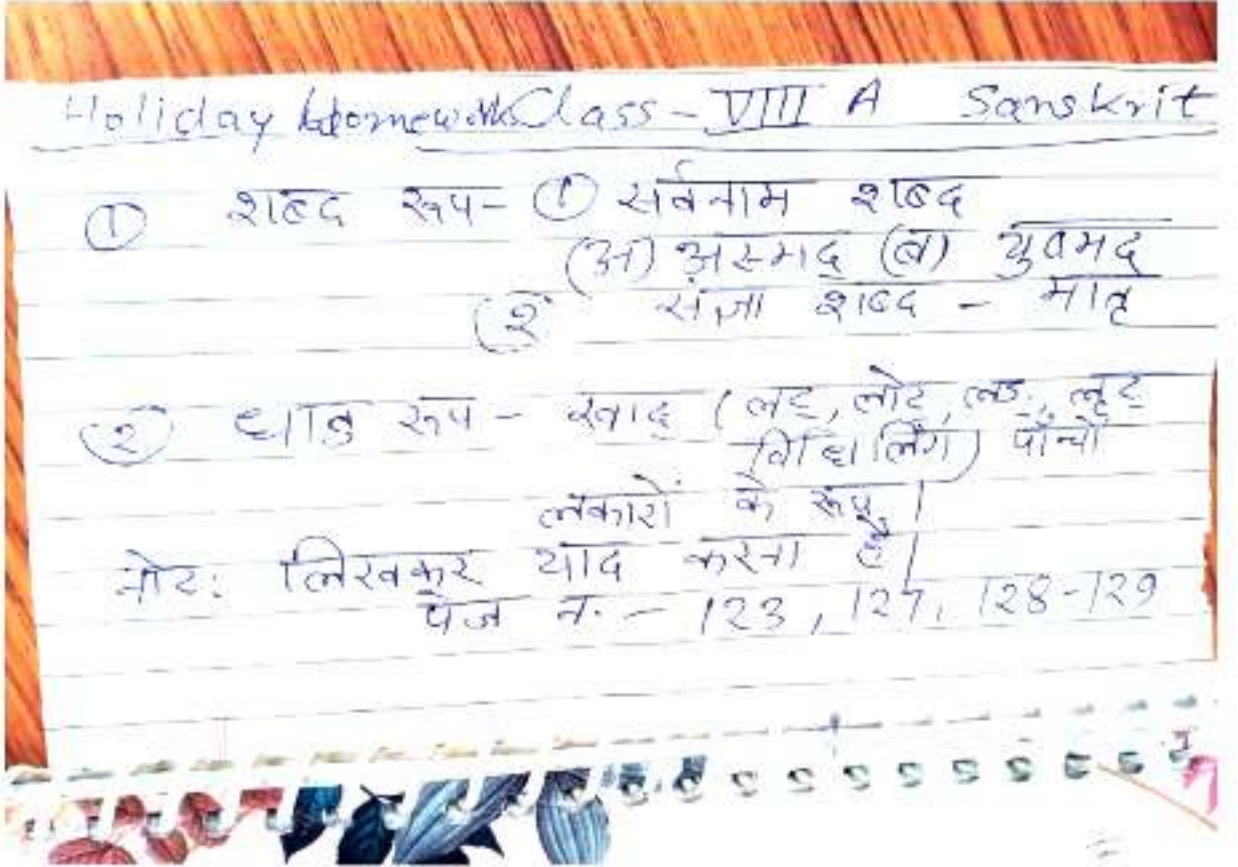 Holiday Homework Class - VIII A Sanskrit
① शब्द रूप - ① सर्वनाम शब्द
(अ) अस्मद् (ब) युष्मद्
(२) संज्ञा शब्द - मातृ
(२) धातु रूप - खाद् (लट्, लोट्, लङ्, लृट्
विधिलिंग) पाँचों
लकारों के रूप।
नोट: लिखकर याद करना है।
पेज न. - 123, 127, 128-129